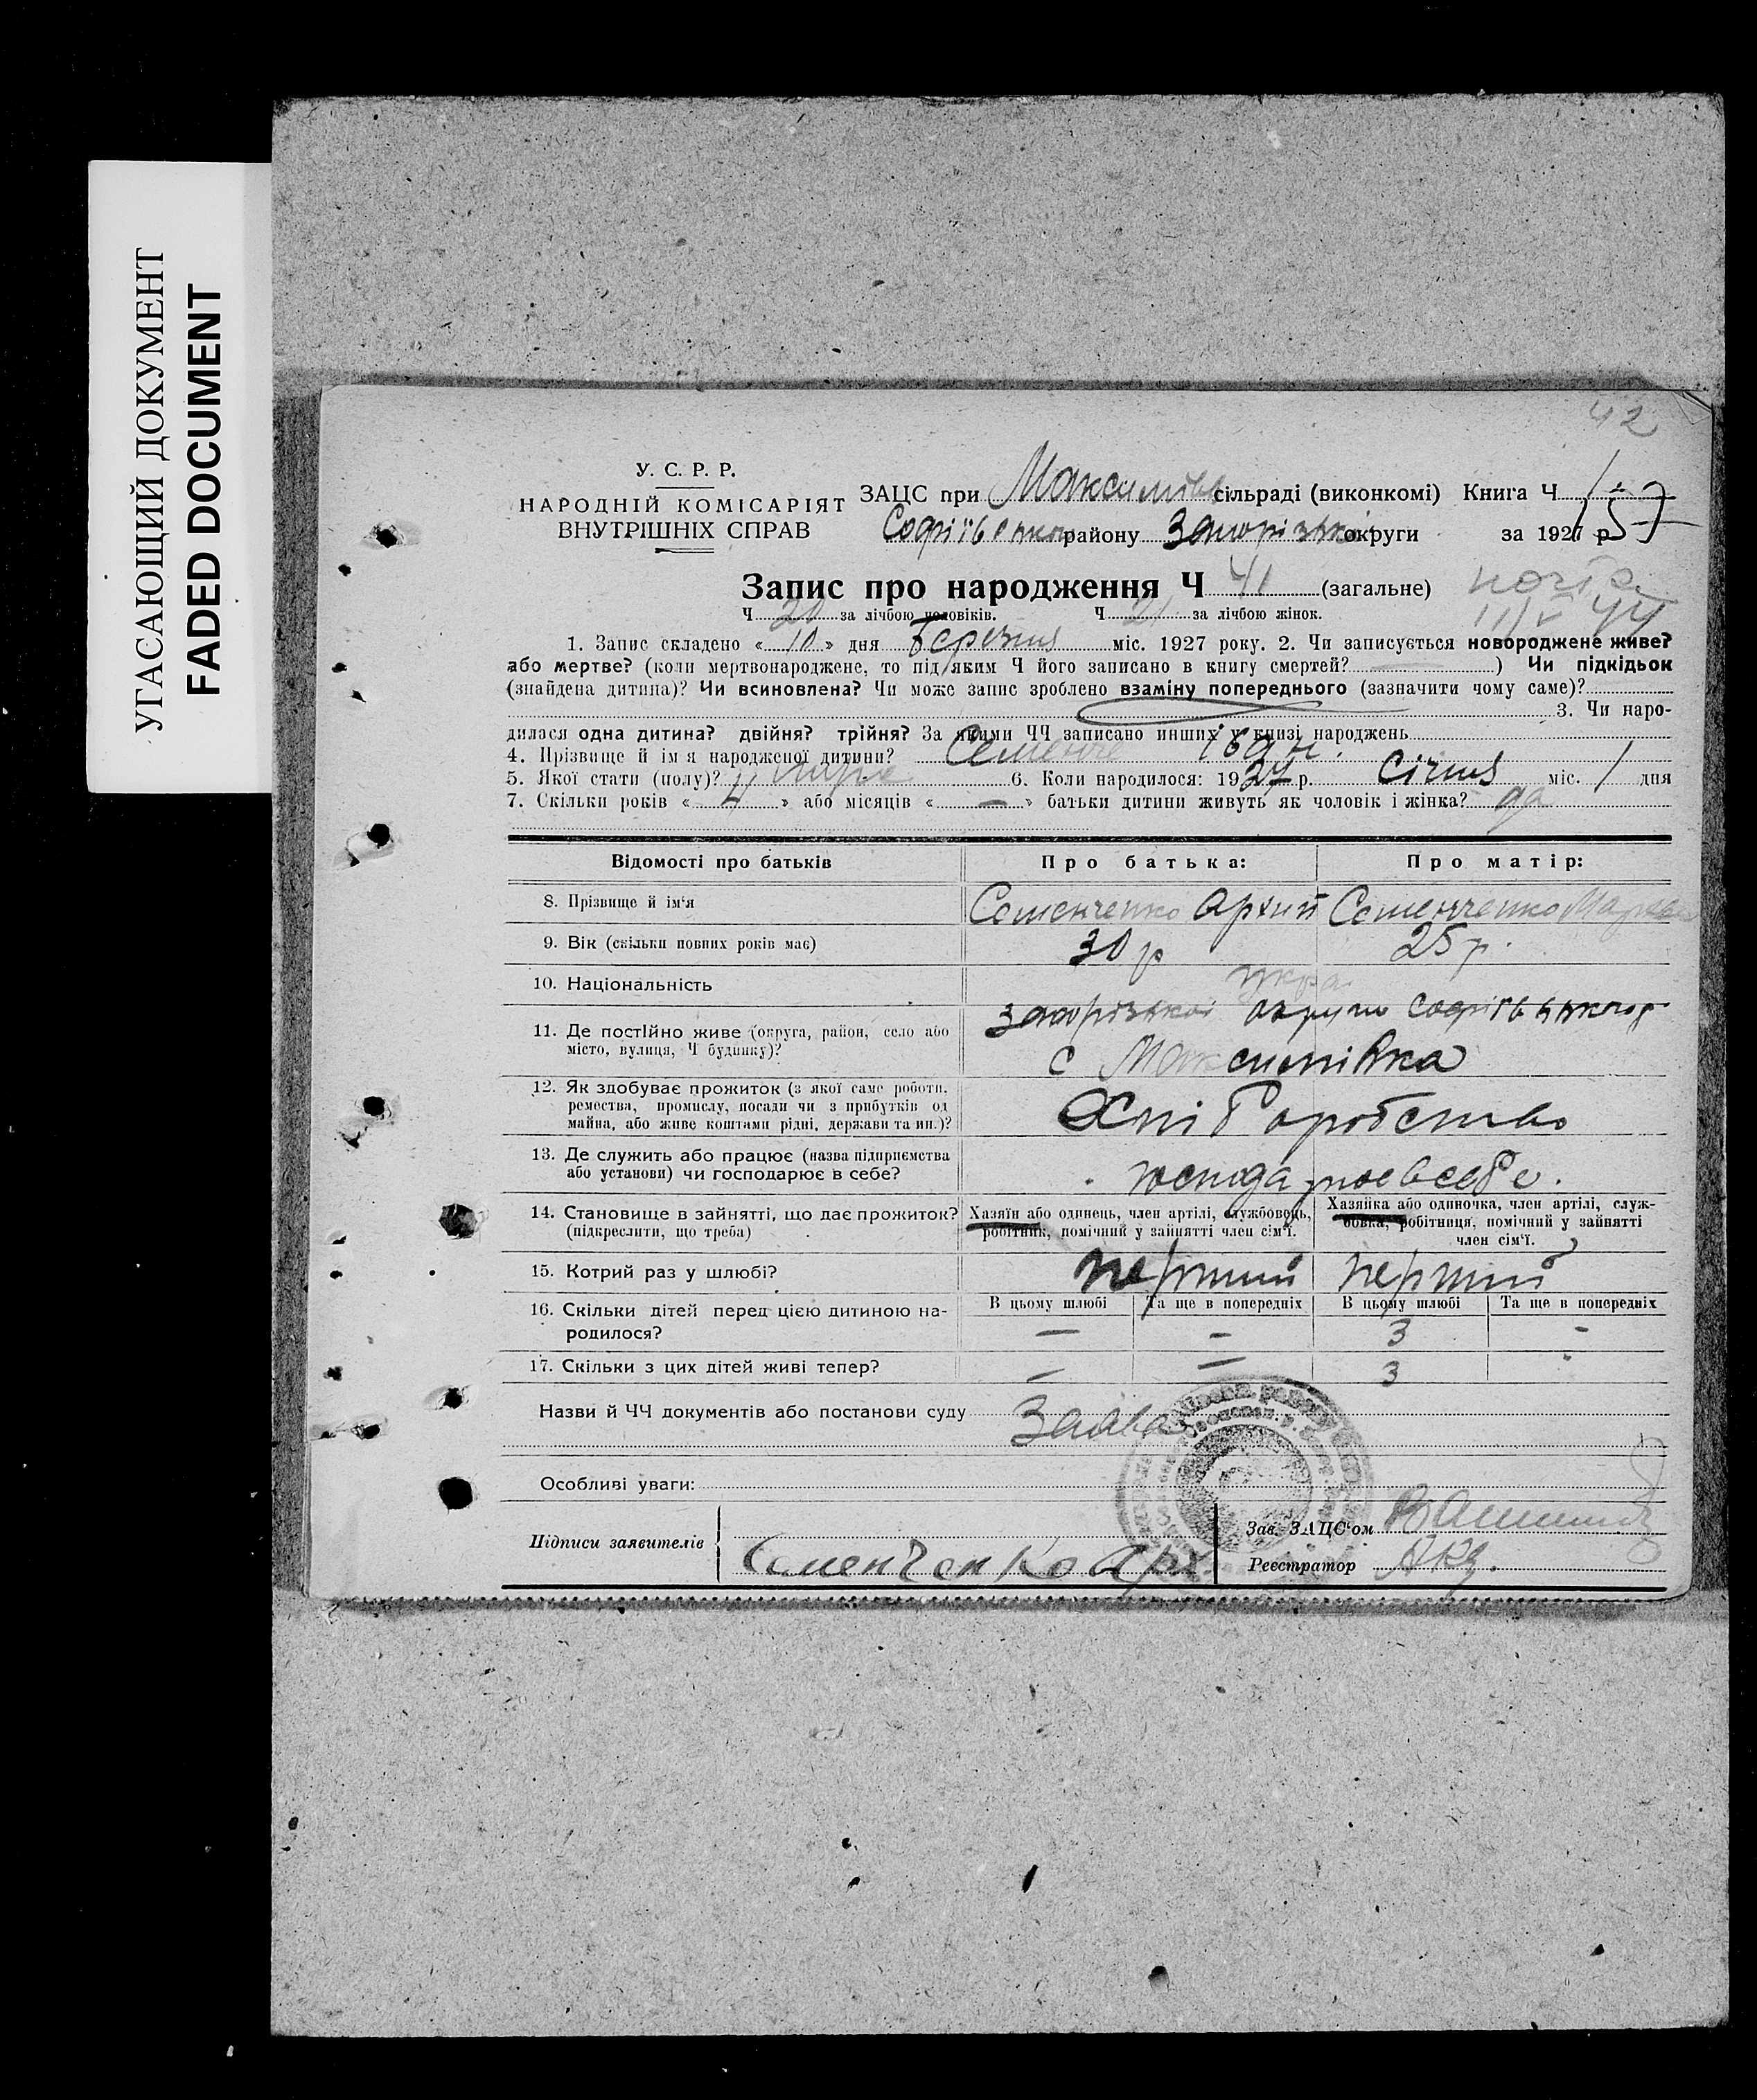 УГАСАЮЩИЙ ДОКУМЕНТ
FADED DOCUMENT
42
У. С. Р. Р.
НАРОДНІЙ КОМІСАРІЯТ
ВНУТРІШНІХ СПРАВ
ЗАЦС при Максимівк сільраді (виконкомі) Книга Ч
Софіївськог району Запорізької округи за 1927 р.
157
Запис про народження Ч 41 (загальне)
Ч 20 за лічбою чоловіків. Ч 21 за лічбою жінок.
1. Запис складено « 10 » дня Березня міс. 1927 року. 2. Чи записується новороджене живе?
або мертве? (коли мертвонароджене, то під яким Ч його записано в книгу смертей? — ) Чи підкідьок
(знайдена дитина)? Чи всиновлена? Чи може запис зроблено взаміну попереднього (зазначити чому саме)?
3. Чи наро-
дилася одна дитина? двійня? трійня? За якими ЧЧ записано инших у книзі народжень
4. Прізвище й ім'я народженої дитини? Семенче Іван.
5. Якої стати (полу)? 6. Коли народилося: 1927 р. Січня міс. 1 дня
7. Скільки років « 4 » або місяців « — » батьки дитини живуть як чоловік і жінка? да
Відомості про батьків Про батька: Про матір:
8. Прізвище й ім'я Семенченко Архип Семенченко
9. Вік (скільки повних років має) 30 р 25 р.
10. Національність укра
11. Де постійно живе (округа, район, село або Запорізької округи Софіївського р
місто, вулиця, Ч будинку)? с Максимівка
12. Як здобуває прожиток (з якої саме роботи,
ремества, промислу, посади чи з прибутків од Хліборобство
майна, або живе коштами рідні, держави та ин.)?
13. Де служить або працює (назва підприємства
або установи) чи господарює в себе? господарює в себе.
14. Становище в зайнятті, що дає прожиток? Хазяїн або одинець, член артілі, службовець, Хазяйка або одиночка, член артілі, служ-
(підкреслити, що треба) робітник, помічний у зайнятті член сім'ї. бовка, робітниця, помічний у зайнятті
член сім'ї.
15. Котрий раз у шлюбі? перший перший
16. Скільки дітей перед цією дитиною на- В цьому шлюбі Та ще в попередніх В цьому шлюбі Та ще в попередніх
родилося? — — 3 -
17. Скільки з цих дітей живі тепер? — — 3
Назви й ЧЧ документів або постанови суду Заява
Особливі уваги:
Підписи заявителів Семенченко Арх
Зав. ЗАЦС'ом
Реєстратор